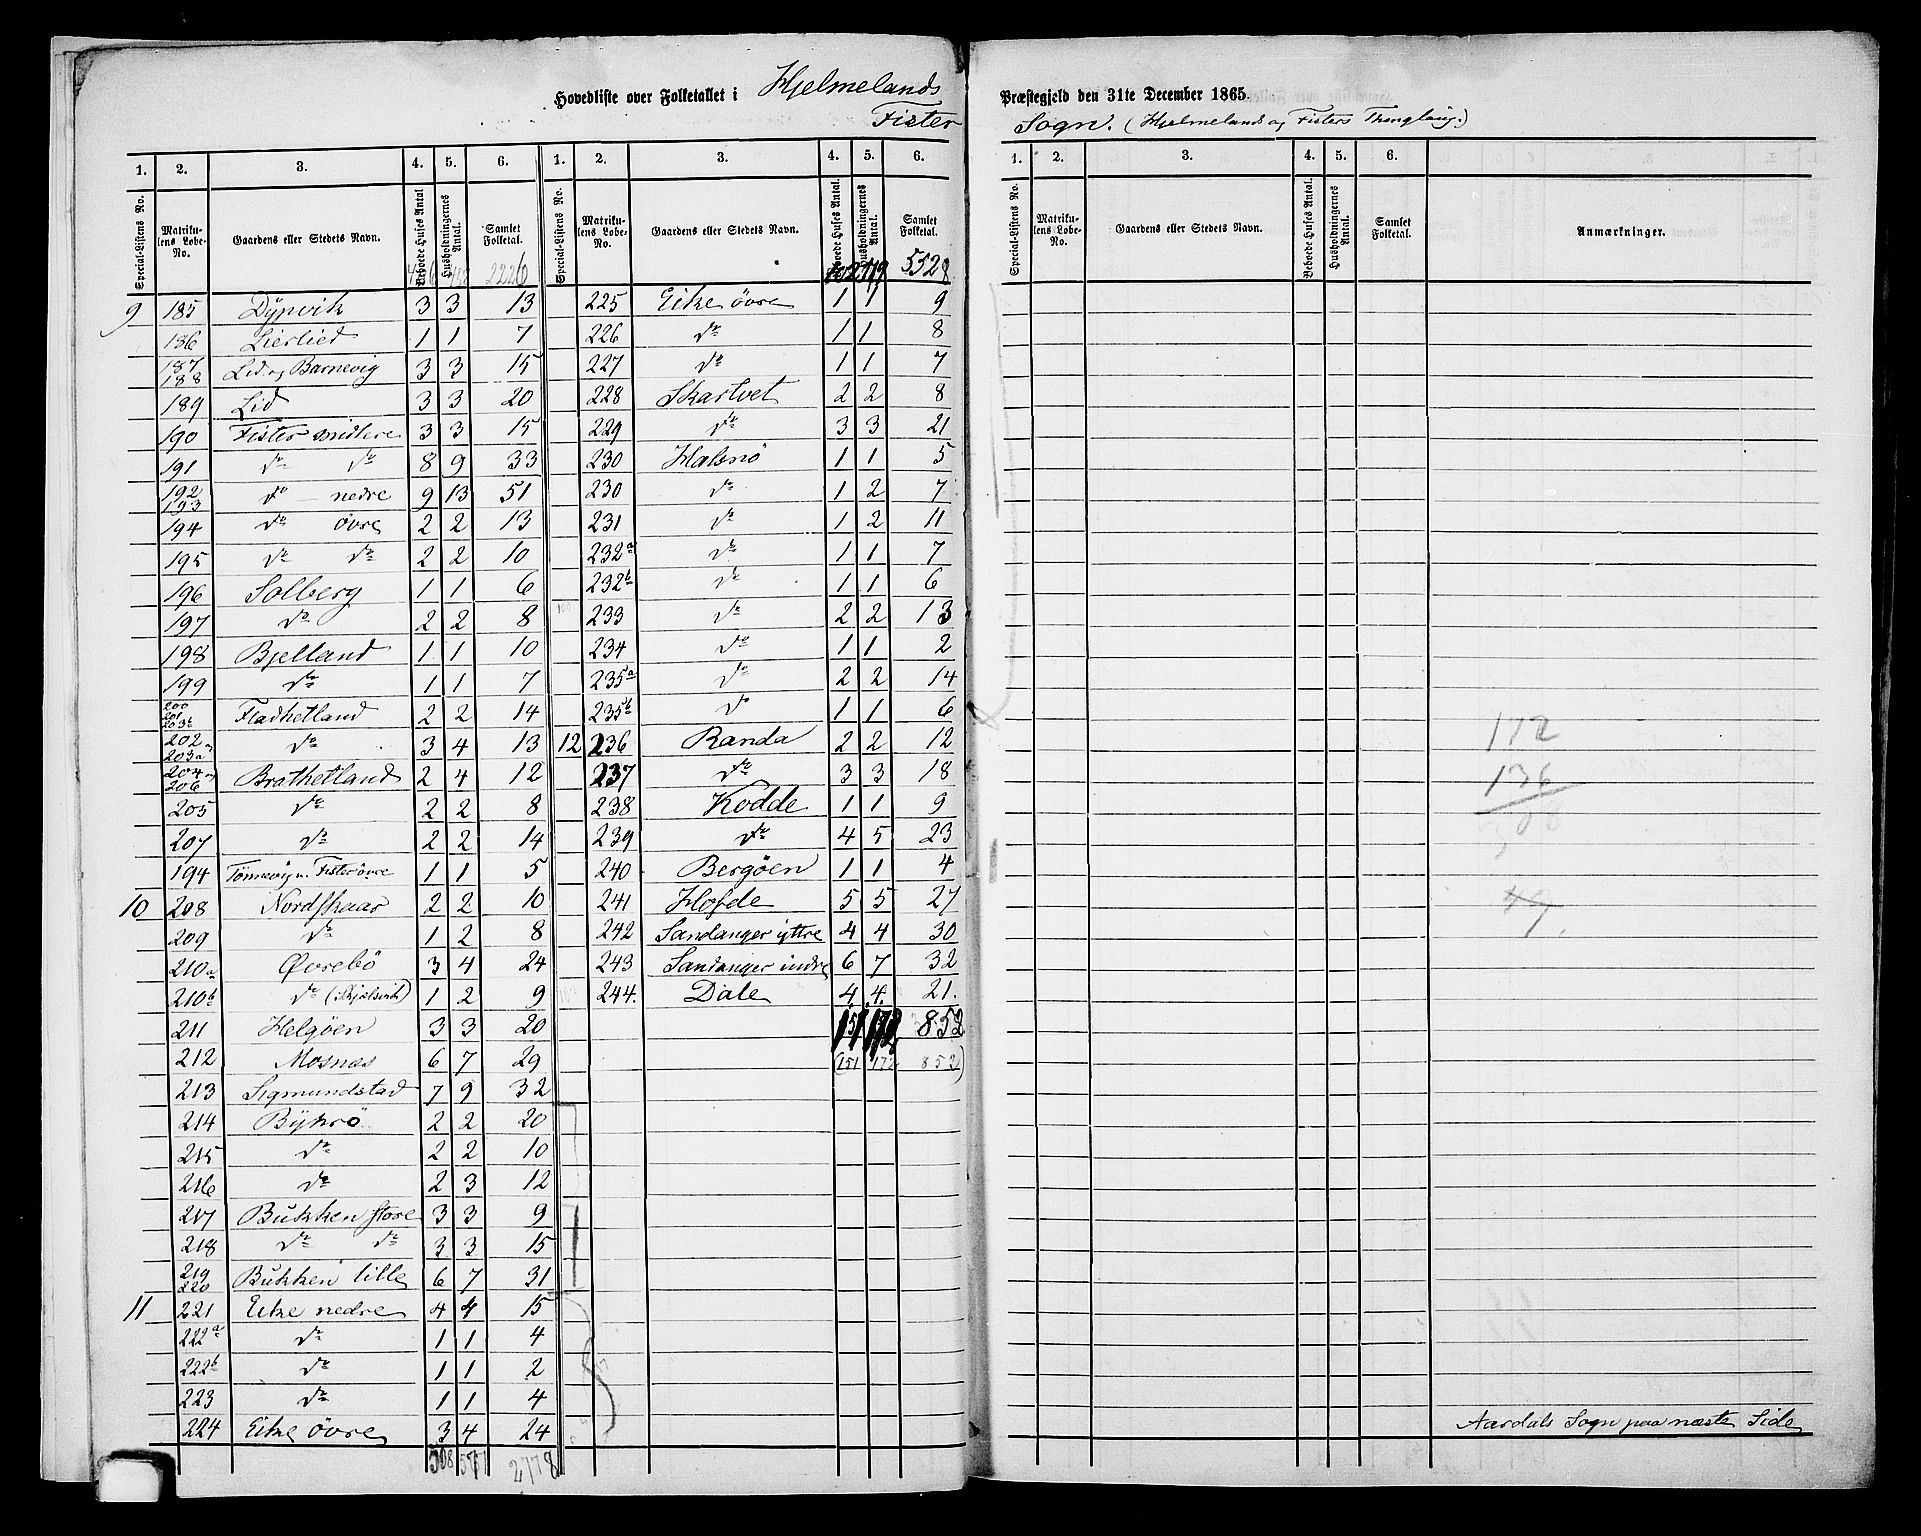 Hovedliste over Folketallet i Hjelmelands Præstegjeld den 31te December 1865.
Fister Sogn. (Hjelmelands og Fisters Thinglaug.)
1. 2. 3. 4. 5. 6. 1. 2. 3. 4. 5. 6.
Special-Listens No. Matrikulens Løbe-No. Gaardens eller Stedets Navn. Beboede Huses Antal Husholdningernes Antal. Samlet Folketal. Special-Listens No. Matrikulens Løbe-No. Gaardens eller Stedets Navn. Beboede Huses Antal. Husholdningernes Antal. Samlet Folketal.
2226 5528
9 185 Dypvik 3 3 13
186 Lierlied 1 1 7
187 188 Lid og Barnevig 3 3 15
189 Lid 3 3 20
190 Fister midlere 3 3 15
191 do do 8 9 33
192 193 do nedre 9 13 51
194 do övre 2 2 13
195 do do 2 2 10
196 Solberg 1 1 6
197 do 2 2 8
198 Bjelland 1 1 10
199 do 1 1 7
200 201 203b Fladhetland 2 2 14
202 og 203a do 3 4 13
204 og 206 Brathetland 2 4 12
205 do 2 2 8
207 do 2 2 14
194 Tönnevig u. Fister övre 1 1 5
10 208 Nordskaar 2 2 10
209 do 1 2 8
210a Øvrebö 3 4 24
210b do (i Skjælsvik) 1 2 9
211 Helgöen 3 3 20
212 Mosnæs 6 7 29
213 Sigmundstad 7 9 32
214 Byhrö 2 2 20
215 do 2 2 10
216 do 2 3 12
217 Bukken store 3 3 9
218 do do 3 3 15
219 220 Bukken lille 6 7 31
11 221 Eike nedre 4 4 15
222a do 1 1 4
222b do 1 1 2
223 do 1 1 4
224 Eike övre 3 4 24
508 571 2778
225 Eike övre 1 1 9
226 do 1 1 8
227 do 1 1 7
228 Skartvet 2 2 8
229 do 3 3 21
230 Halsnö 1 1 5
230 do 1 2 7
231 do 1 2 11
232a do 1 1 7
232b do 1 1 6
100 233 do 2 2 13
234 do 1 1 2
235a do 2 2 14
235b do 1 1 6
12 236 Randa 2 2 12
237 do 3 3 18
238 Kodde 1 1 9
239 do 4 5 23
240 Bergöen 1 1 4
241 Hofde 5 5 27
242 Sandanger yttre 4 4 30
243 Sandanger indre 6 7 32
244. Dale 4 4 21.
151 172 852
(151 172 852)
1. 2. 3. 4. 5. 6.
Special-Listens No. Matrikulens Løbe-No. Gaardens eller Stedets Navn. Beboede Huses Antal. Husholdningernes Antal. Samlet Folketal. Anmærkninger.
172
136
308
Aardals Sogn paa næste Side